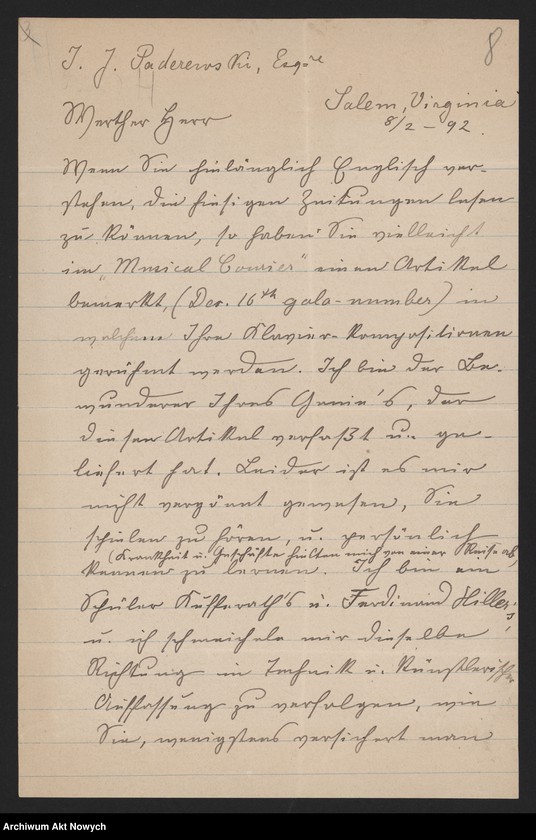 8
I. J. Paderewski, Esqre
Salem, Virginia
8/2 – 92.
Werther Herr
Wenn Sie hinlänglich Englisch ver-
stehen, die hiesigen Zeitungen lesen
zu können, so haben Sie vielleicht
im "Musical Courier" einen Artikel
bemerkt, (Dec. 16th gala-number) in
welchem Ihre Klavier-Kompositionen
gerühmt werden. Ich bin der Be-
wunderer Ihres Genie's, der
diesen Artikel verfaßt u. ge-
liefert hat. Leider ist es mir
nicht vergönnt gewesen, Sie
spielen zu hören, u. persönlich
(Krankheit u. Geschäfte hielten mich von einer Reise ab)
kennen zu lernen. Ich bin ein
Schüler Kufferath's u. Ferdinand Hiller's,
u. ich schmeichele mir dieselbe
Richtung in Technik u. Künstlerischer
Auffassung zu verfolgen, wie
Sie, wenigstens versichert man
Archiwum Akt Nowych